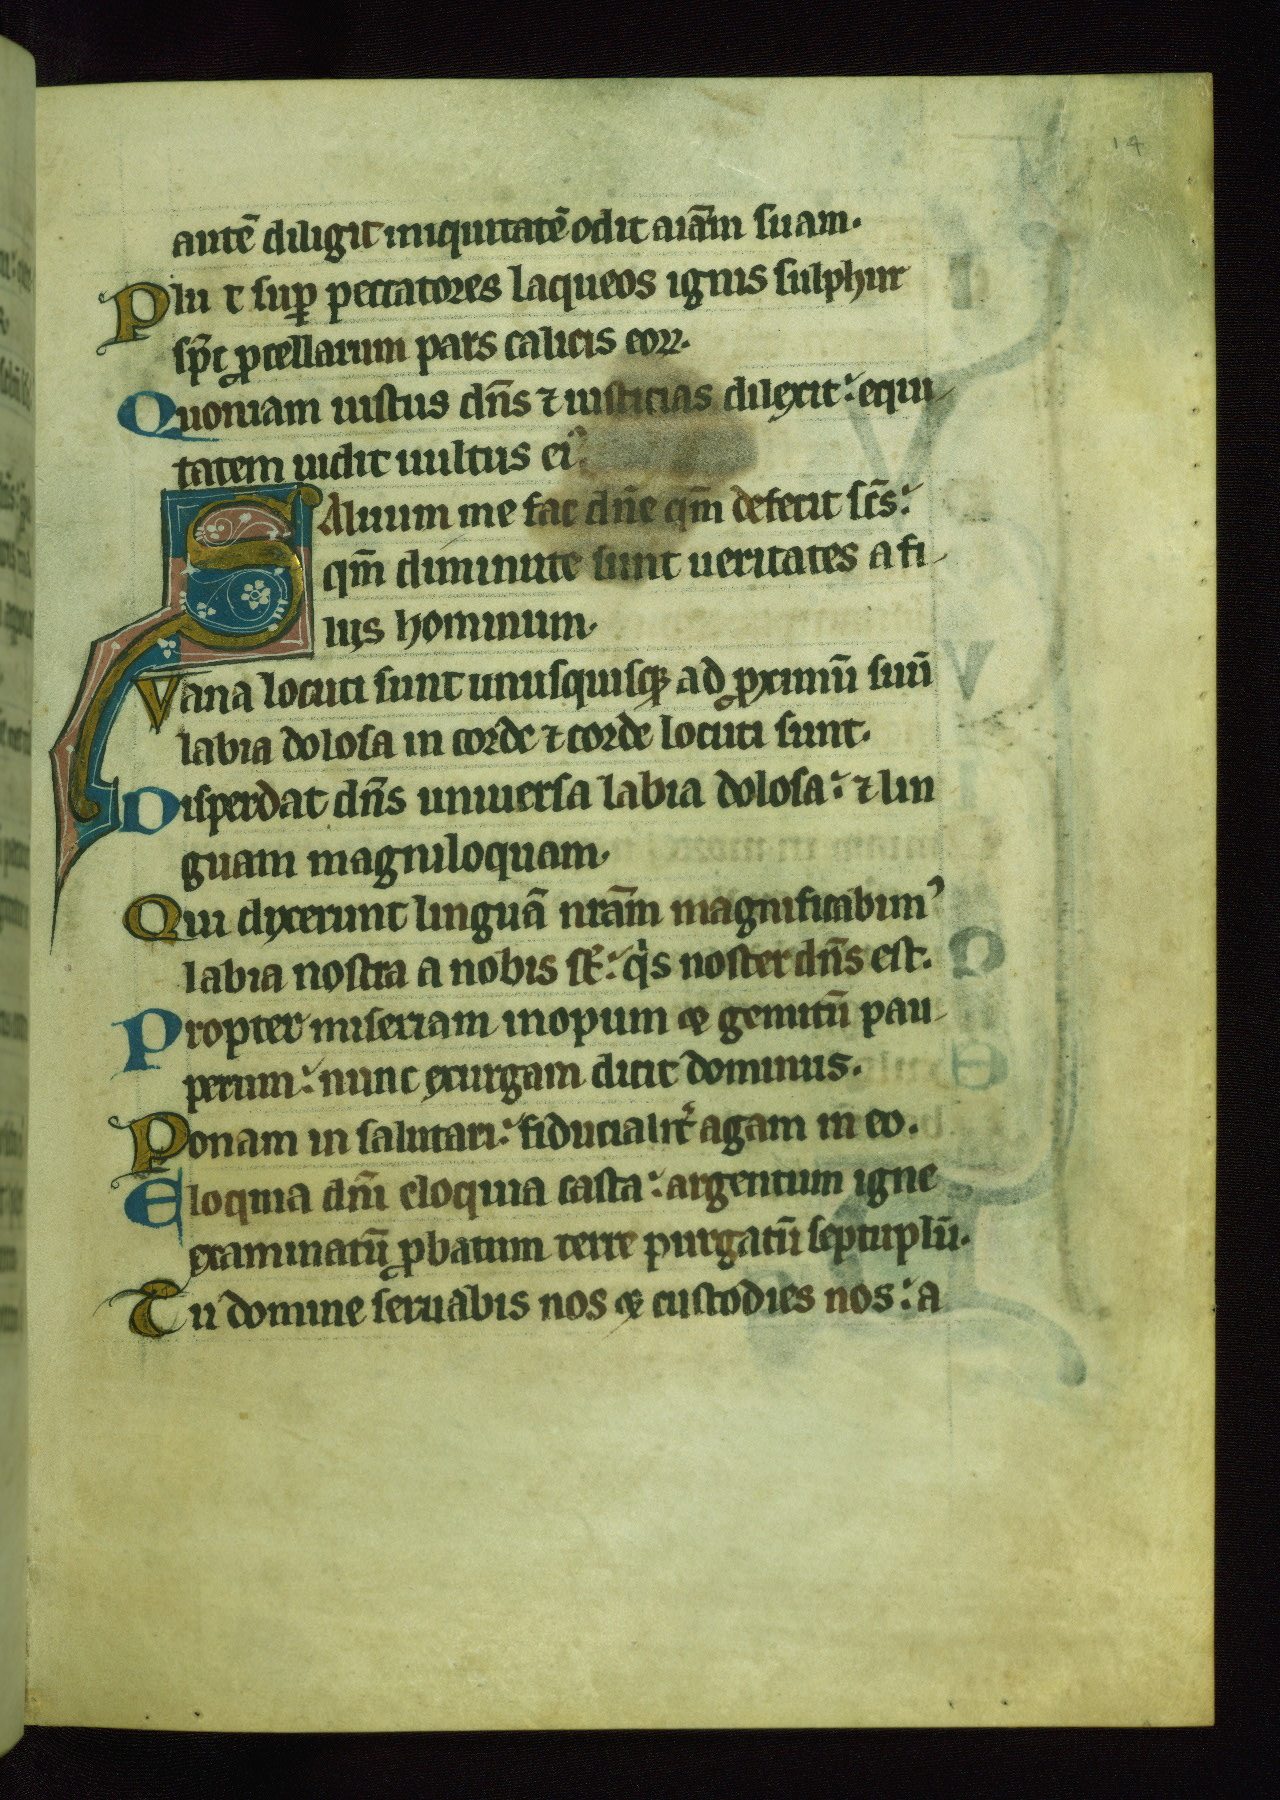 14
autē diligit iniquitatē odit aīam suam.
Plu t sup peccatores laqueos ignis sulphur
sp̄c pcellarum pars calicis eoꝝ.
Quoniam iustus dn̄s ⁊ iusticias dilexit: equi
tatem uidit uultus ei᷒.
Saluum me fac dn̄e qm̄ defecit sc̄s:
qm̄ diminute sunt ueritates a fi
liis hominum.
Vana locuti sunt unusquisqꝫ ad ꝓximū suū
labia dolosa in corde ⁊ corde locuti sunt.
Disperdat dn̄s uniuersa labia dolosa: ⁊ lin
guam magniloquam.
Qui dixerunt linguā nrām magnificabim᷒
labia nostra a nobis st̄: qis noster dn̄s est.
Propter miseriam inopum ⁊ gemitū pau
perum: nunc exurgam dicit dominus.
Ponam in salutari: fiducialit̄ agam in eo.
Eloquia dn̄i eloquia casta: argentum igne
examinatū ꝓbatum terre purgatū septuplū.
Tu domine seruabis nos ⁊ custodies nos: a